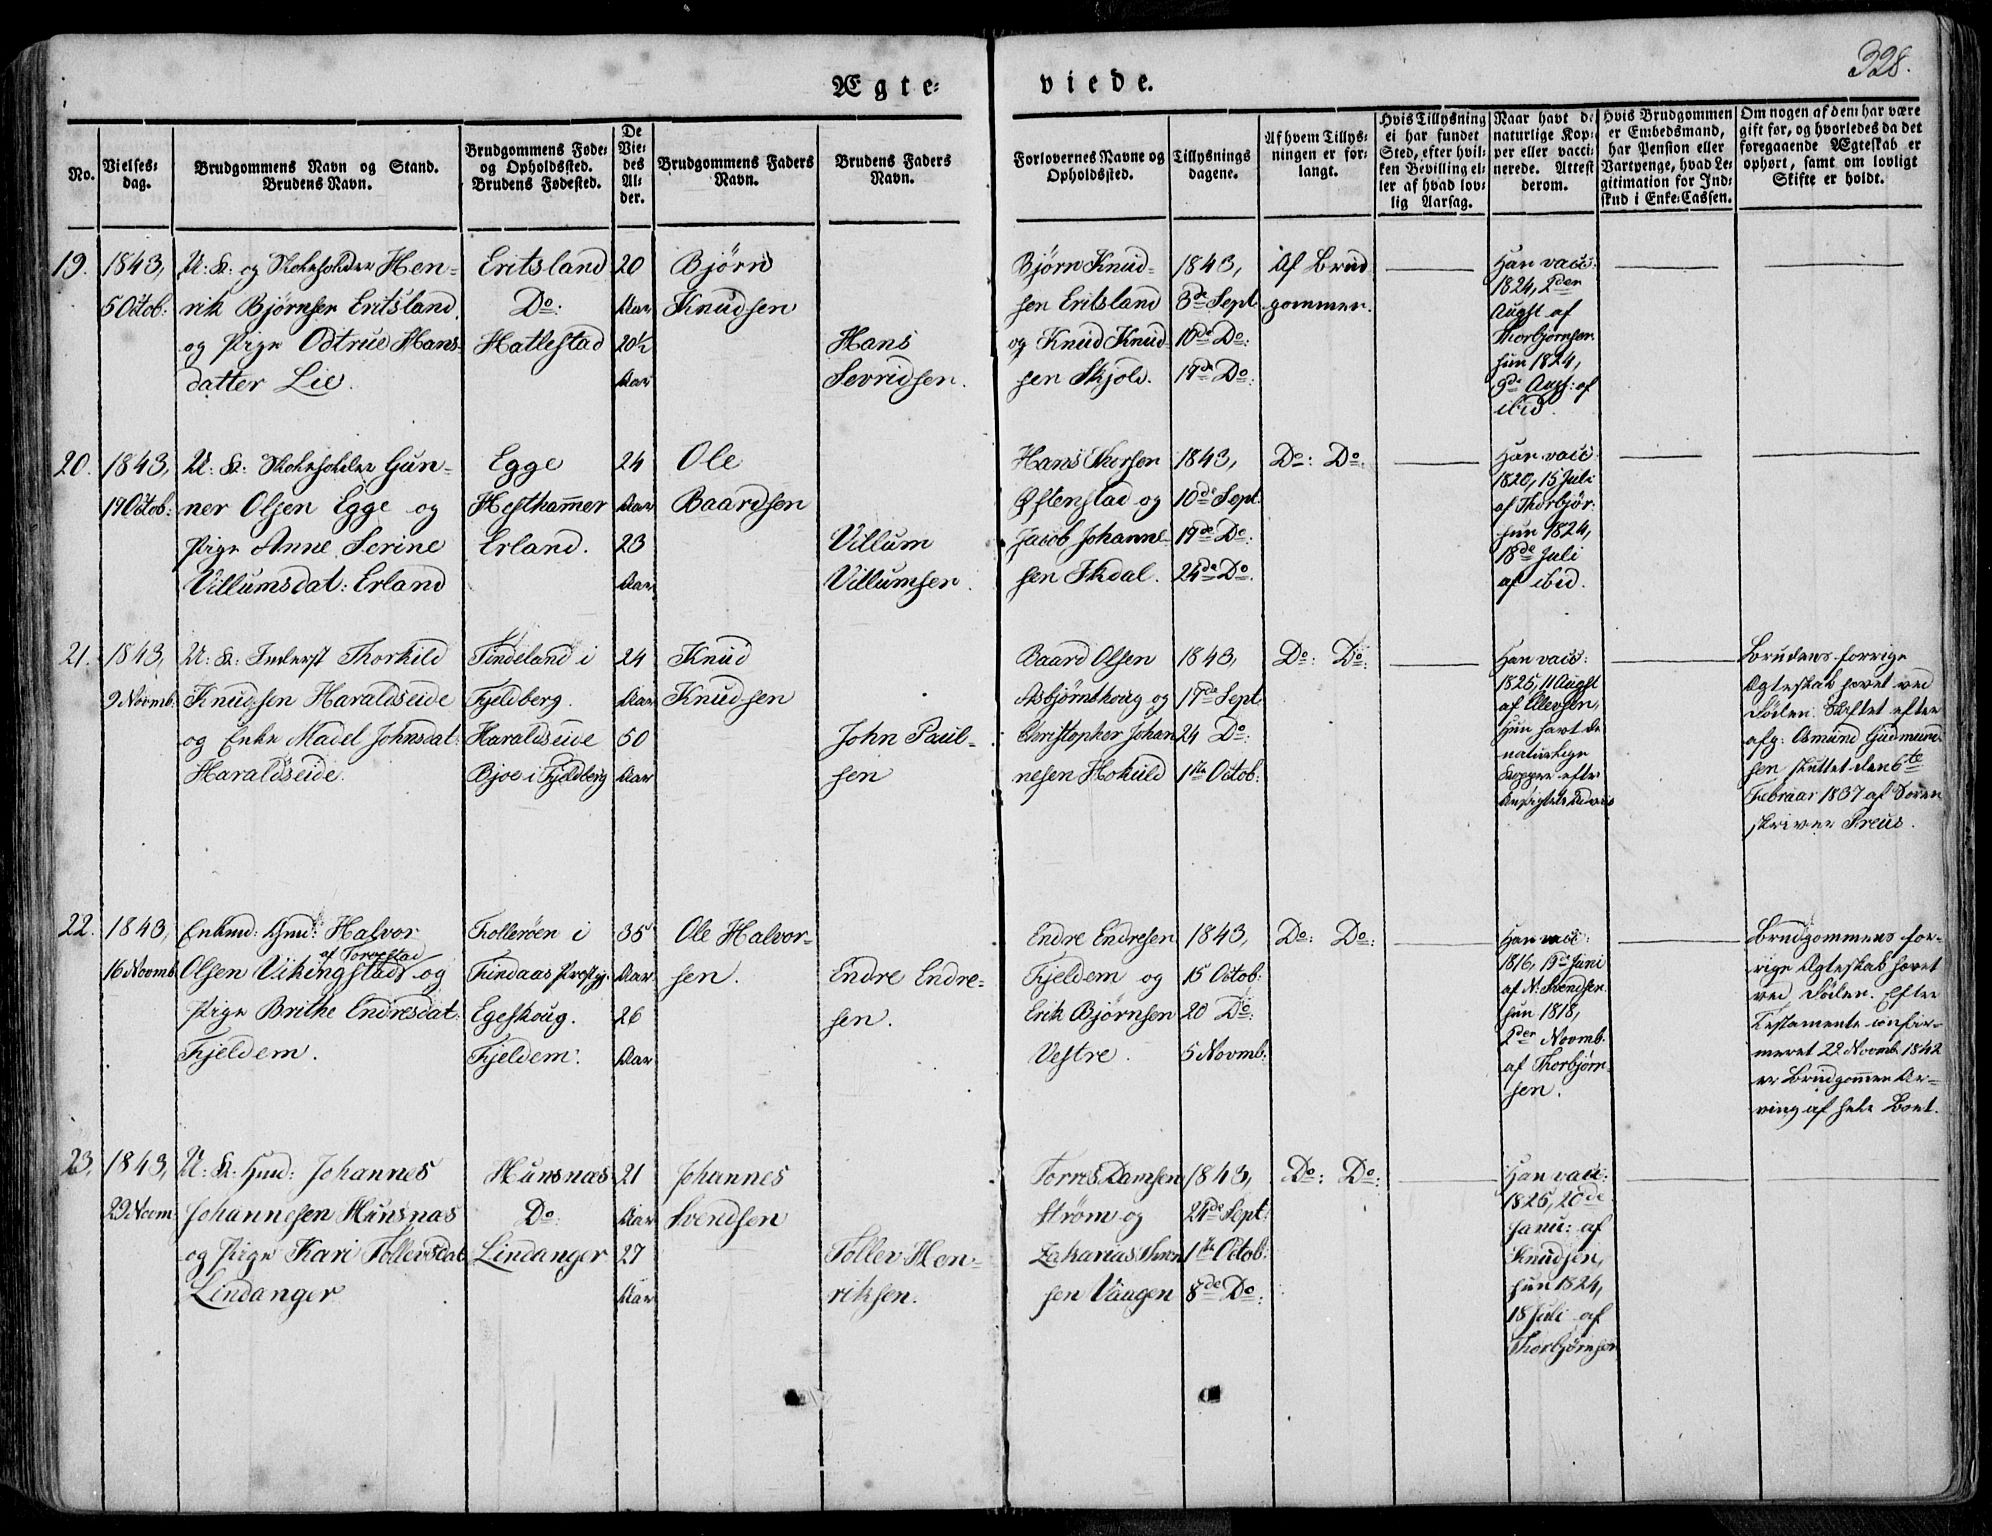 328.
Ægte-
viede.
No.
Vielses-
dag.
Brudgommens Navn og Stand.
Brudens Navn.
Brudgommens Føde-
og Opholdssted.
Brudens Fødested.
De
Vie-
des
Al-
der.
Brudgommens Faders
Navn.
Brudens Faders
Navn.
Forlovernes Navne og
Opholdssted.
Tillysnings
dagene.
Af hvem Tillys-
ningen er for-
langt.
Hvis Tillysning
ei har fundet
Sted, efter hvil-
ken Bevilling el-
ler af hvad lov-
lig Aarsag.
Naar havt de
naturlige Kop-
per eller vacci-
nerede. Attest
derom.
Hvis Brudgommen
er Embedsmand,
har Pension eller
Vartpenge, hvad Le-
gitimation for Ind-
skud i Enke-Cassen.
Om nogen af dem har være
gift før, og hvorledes da det
foregaaende Ægteskab er
ophørt, samt om lovligt
Skifte er holdt.
19.
1843,
5 Octob:
U: K: og Hen-
rik Bjørnsen Eritsland
og Pige Odtrue Hans-
datter Lie.
Eritsland
Do:
Hatlestad
20
Aar
20½
Aar
Bjørn
Knudsen
Hans
Sevridsen.
Bjørn Knud-
sen Eritsland
og Knud Knud-
sen Skjold.
1843,
3de Sept
10de Do:
17de Do:
Af Brud
gommen.
Han vacc:
1824, 2den
Augst af
Thorbjørnsen
hun 1824,
9de Augst: af
ibid.
20.
1843,
19 Octob:
U: K: Gun-
ner Olsen Egge og
Pige Anne Serine
Villumsdat: Erland
Egge
Hesthammer
Erland.
24
Aar
23
Aar
Ole
Baardsen
Villum
Villumsen.
Hans Thorsen
Østenstad og
Jacob Johanne-
sen Ikdal.
1843,
10de Sept:
17de Do:
24de Do:
Do: Do:
Han vacc
1820, 15 Juli
af Thorbjør:
hun 1824,
18de Juli
af ibid.
21.
1843,
9 Novmb:
U: K: Inderst Thorkild
Knudsen Haraldseide
og Enke Madel Johnsdat:
Haraldseide.
Tindeland i
Fjeldberg.
Haraldseide
Bjoe i Fjeldberg
24
Aar
50
Aar
Knud
Knudsen
John Paul-
sen
Baard Olsen
Asbjørnthoug og
Christopher Johan
nesen Hokuld
1843,
17de Sept
24 Do:
1ste Octob:
Do: Do:
Han vacc:
1825, 11 Augst
af Ellevsen,
Hun havt de
naturlige
Kopper efter
Ansigtets Udvis
Brudens forrige
Ægteskab hævet ved
Døden. Skiftet efter
afg: Osmund Gudmund-
sen sluttet den 6te
Februar 1837 af Soren-
skriver Preus.
22.
1843,
16 Novmb
Enkmd: Gmd: Halvor
af Torpestad
Olsen Vikingstad og
Pige Brithe Endresdat:
Fjeldem.
Tollerøen i
Tindaas Prestgj:
Egeskoug.
Fjeldem.
35
Aar
26
Aar
Ole Halvor-
sen.
Endre Endre-
sen.
Endre Endresen
Fjeldem og
Erik Bjørnsen
Vestre.
1843,
15 Octob:
20 Do:
5 Novmb:
Do: Do:
Han vacc:
1816, 19de Juni
af N: Svendsen
hun 1818,
2den Novmb.
af Thorbjørn-
sen.
Brudgommens for-
rige Ægteskab hævet
ved Døden. Efter
Testamente confir-
meret 22 Novmb: 1842
er Brudgommen Ar-
ving af hele Boet.
23.
1843,
29 Novm:
U: K: Gmd: Johannes
Johannesen Hunsnæs
og Pige Kari Tollevsdat
Lindanger
Hunsnæs
Do:
Lindanger
21
Aar
27
Aar
Johannes
Svendsen
Tollev Hen-
riksen.
Torres Damsen
Strøm og
Zakarias Iver-
sen Vaagen
1843,
24de Sept:
1ste Octob:
8de Do:
Do: Do:
Han vacc:
1826, 20de
Janu: af
Knudsen,
hun 1824,
18 Juli af
Thorbjørnsen